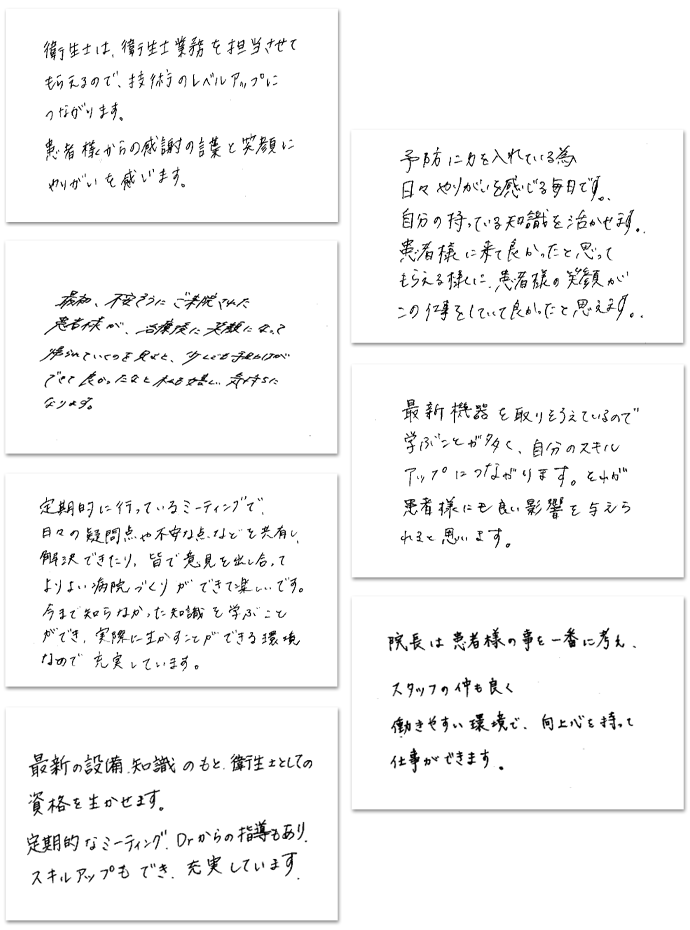 衛生士は、衛生士業務を担当させて
もらえるので、技術のレベルアップに
つながります。
患者様からの感謝の言葉と笑顔に
やりがいを感じます。
最初、不安そうにご来院された
患者様が、治療後に笑顔になって
帰られていくのを見ると、少しでも手助けが
できて良かったなと私も嬉しい気持ちに
なります。
定期的に行っているミーティングで、
日々の疑問点や不安な点などを共有し、
解決できたり、皆で意見を出し合って
よりよい病院づくりができて楽しいです。
今まで知らなかった知識を学ぶこと
ができ、実際に生かすことができる環境
なので充実しています。
最新の設備、知識のもと、衛生士としての
資格を生かせます。
定期的なミーティング、Drからの指導もあり、
スキルアップもでき、充実しています。
予防に力を入れている為
日々やりがいを感じる毎日です。
自分の持っている知識を活かせます。
患者様に来て良かったと思って
もらえる様に、患者様の笑顔が
この仕事をしていて良かったと思えます。
最新機器を取りそろえているので
学ぶことが多く、自分のスキル
アップにつながります。それが
患者様にも良い影響を与えら
れると思います。
院長は患者様の事を一番に考え、
スタッフの仲も良く
働きやすい環境で、向上心を持って
仕事ができます。